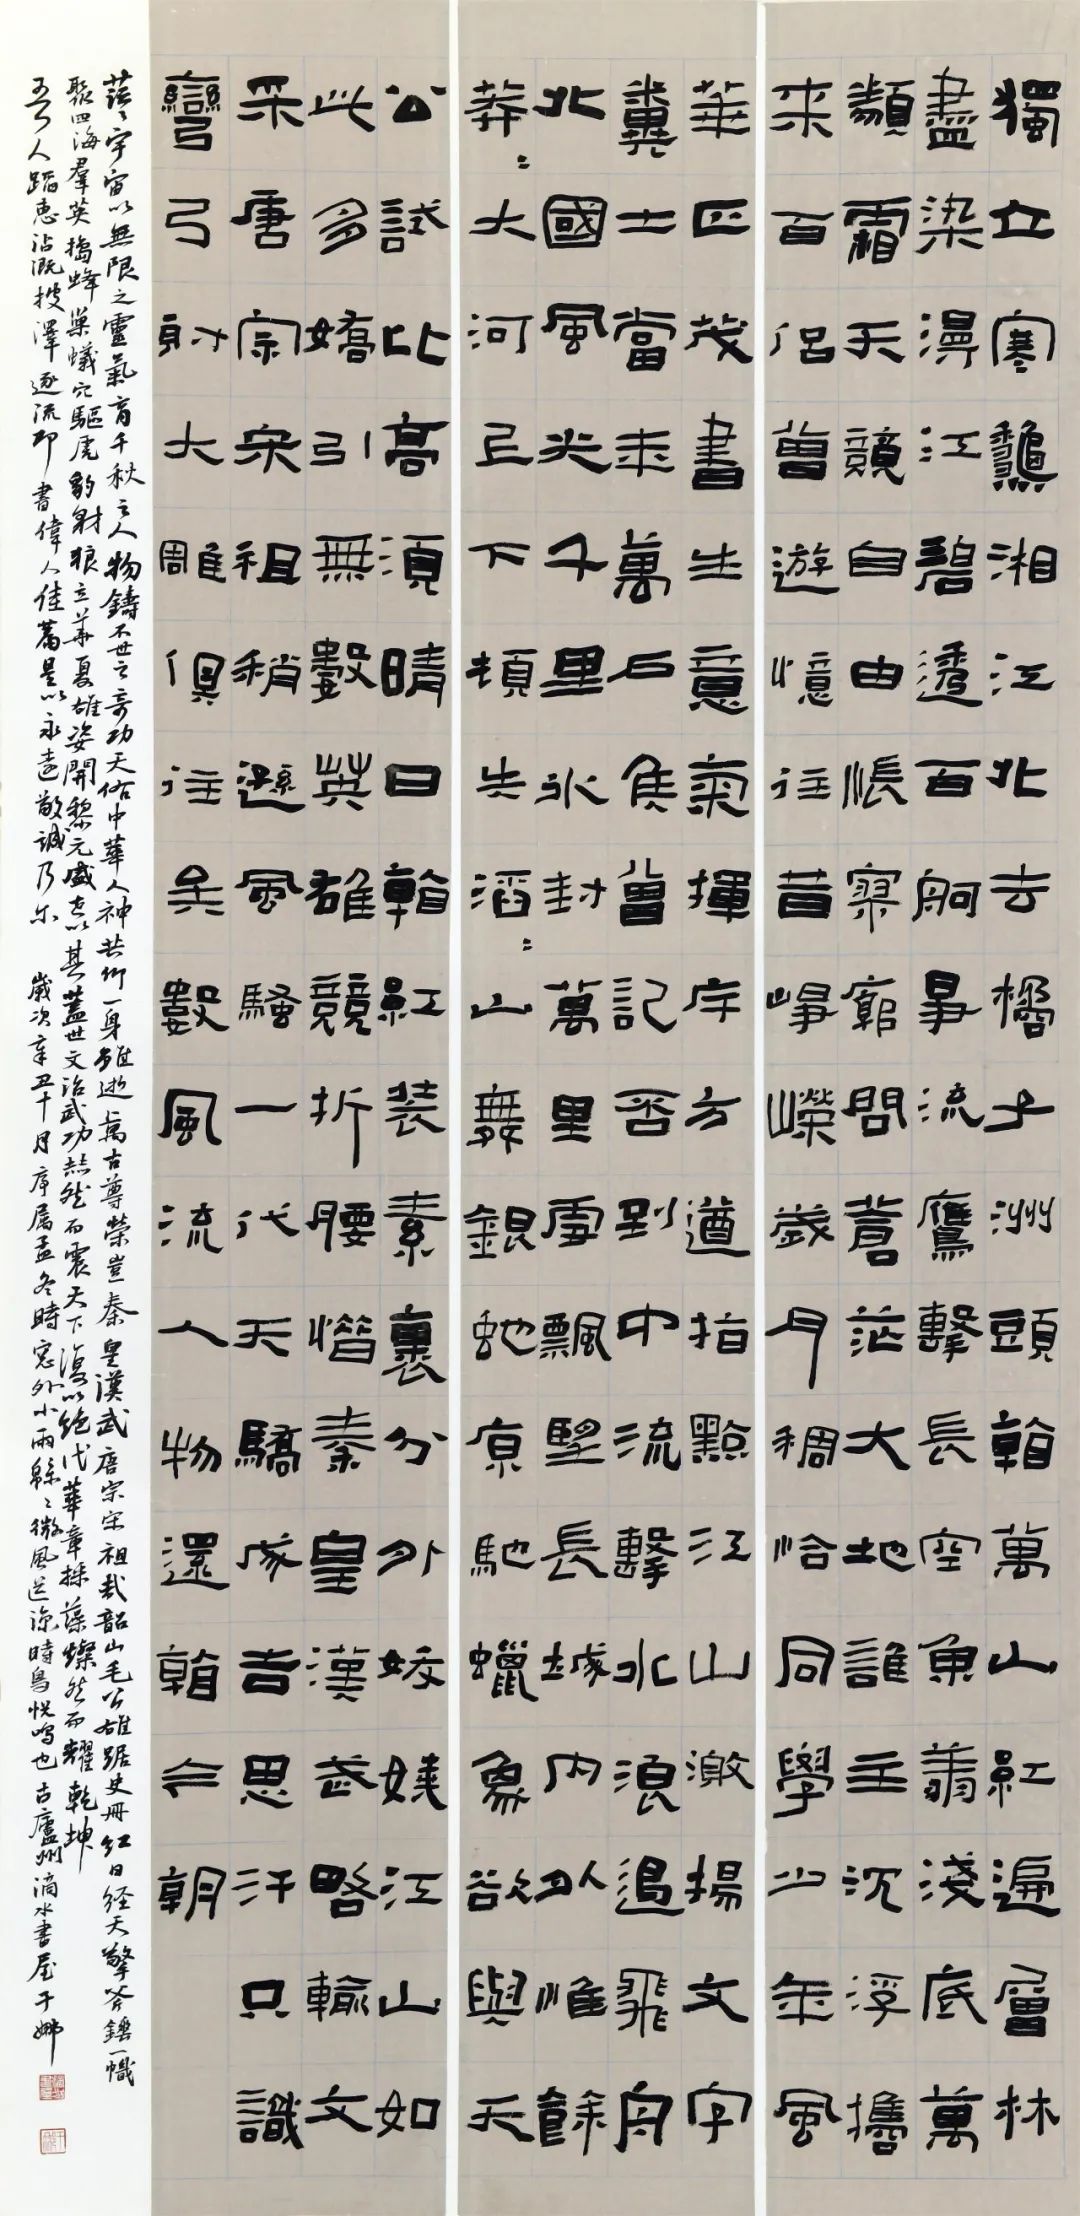 獨立寒龝湘江北去橘子洲頭看萬山紅遍層林
盡染漫江碧透百舸爭流鷹擊長空魚翔淺底萬
類霜天競自由悵寥廓問蒼茫大地誰主沈浮攜
來百侶曾遊憶往昔崢嶸歲月稠恰同學少年風
華正茂書生意氣揮斥方遒指點江山激揚文字
糞土當年萬戶侯曾記否到中流擊水浪遏飛舟
北國風光千里冰封萬里雪飄望長城內外惟餘
莽〻大河上下頓失滔〻山舞銀蛇原馳蠟象欲與天
公試比高須晴日看紅裝素裹分外妖嬈江山如
此多嬌引無數英雄競折腰惜秦皇漢武略輸文
采唐宗宋祖稍遜風騷一代天驕成吉思汗只識
彎弓射大雕俱往矣數風流人物還看今朝
宇宙以無限之靈氣育千秋之人物鑄不世之奇功天佑中華人神共仰一身雖逝萬古尊榮豈秦皇漢武唐宗宋祖哉韶山毛公雄踞史冊紅日經天擎斧錘一幟
聚四海群英搗蜂巢蟻穴驅虎豹射狼立華夏雄姿開黎元盛世以其蓋世文治武功赫然而震天下復以絕代華章摛藻燦然而耀乾坤
人蹈惠沾溉披澤逐流即書偉人佳篇是以永遠敬誠乃尔 歲次辛丑十月序屬孟冬時窗外小雨緜〻微風送涼時鳥悅鳴也古廬州滴水書屋于娜